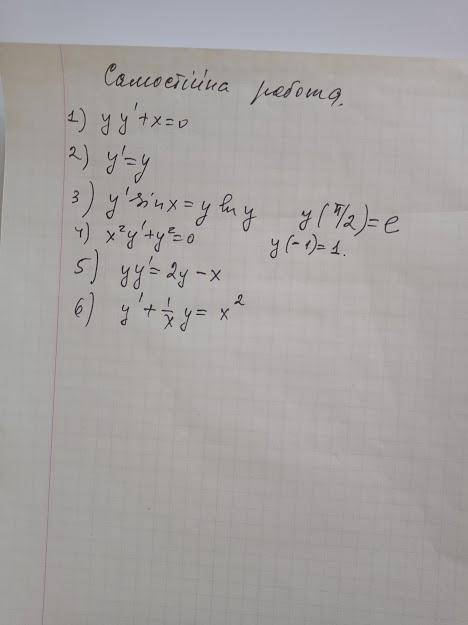 Самостійна работа.
1) yy'+x=0
2) y'=y
3) y' sinx = y ln y y(π/2)=e
4) x²y'+y²=0 y(-1)=1.
5) yy'=2y-x
6) y'+1/x y = x²